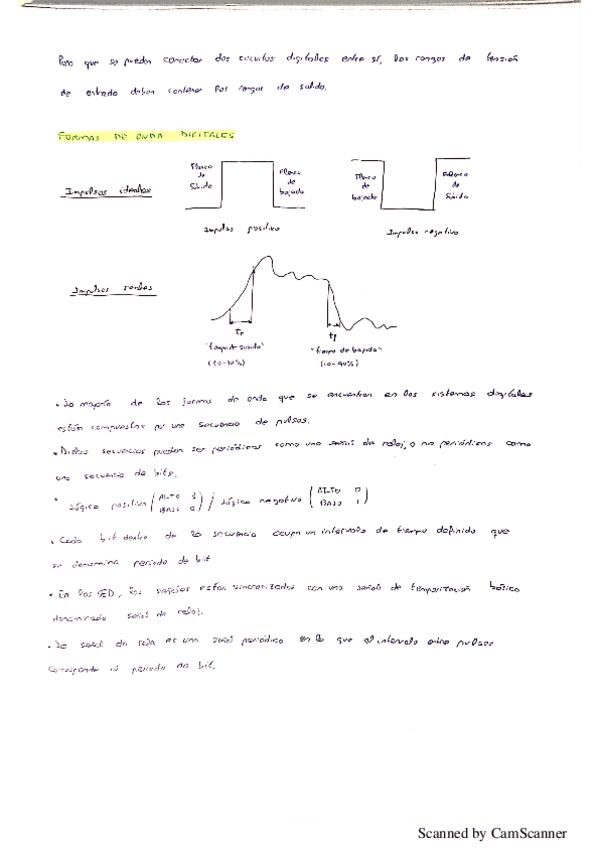 Para que se puedan conectar dos circuitos digitales entre sí, los rangos de tensión
de entrada deben contener los rangos de salida.
FORMAS DE ONDA DIGITALES
Impulsos ideales
Flanco de Subida
Flanco de bajada
Impulso positivo
Flanco de bajada
Flanco de Subida
Impulso negativo
Impulsos reales
tr
"tiempo de subida"
(10-90%)
tf
"tiempo de bajada"
(10-90%)
• La mayoría de las formas de onda que se encuentran en los sistemas digitales
están compuestas por una secuencia de pulsos.
• Dichas secuencias pueden ser periódicas como una señal de reloj, o no periódicas como
una secuencia de bits.
• Lógica positiva (ALTO 1 BAJO 0) / Lógica negativa (ALTO 0 BAJO 1)
• Cada bit dentro de la secuencia ocupa un intervalo de tiempo definido que
se denomina periodo de bit
• En los SED, las señales están sincronizadas con una señal de temporización básica
denominada señal de reloj.
• La señal de reloj es una señal periódica en la que el intervalo entre pulsos
corresponde al periodo de bit.
Scanned by CamScanner